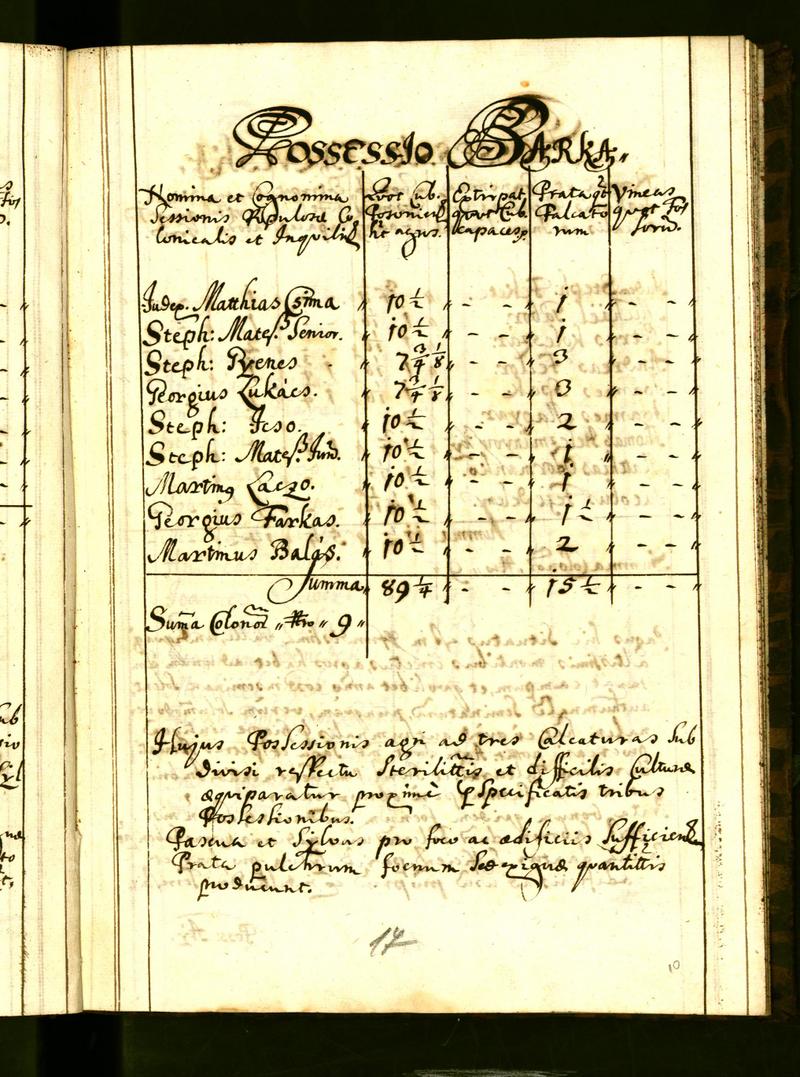 Possessio Barka
Nomina et Cognomina
Sessionis Populosae Co
lonicalis et Inquilin
Quot Cub.
Posonien
hic agros.
Extirpat
quot Cub.
capaces
Prata qt
Falcato
rum
Vineas
quot Fos
soru.
Judex. Matthias Csima " 10 1/2 " - - " 1 " - - "
Steph: Mates. Senior. " 10 1/2 " - - " 1 " - - "
Steph: Pyenes " 7 3/4 1/8 " - - " 3 " - - "
Georgius Lukács. " 7 3/4 1/8 " - - " 3 " - - "
Steph: Jeso. " 10 1/2 " - - " 2 " - - "
Steph: Mates. Jun. " 10 1/2 " - - " 1 " - - "
Martin9 Laczo. " 10 1/2 " - - " 1 " - - "
Georgius Farkas. " 10 1/2 " - - " 1 1/2 " - - "
Martinus Balás. " 10 1/2 " - - " 2 " - - "
Summa " 89 1/4 " - - " 15 1/2 " - - "
Suma Colonor " Nro " 9 "
Hujus Possessionis agri ad tres Calcaturas Sub
divisi respectu Sterilittis et difficilis Culturae
aequiparatur proxime pSpecificatis tribus
Possessionibus.
Pascua et Sylvas pro foco ac aedificiis Sufficien
Prata pulchrum foenum Sed exiguae quantittis
producunt.
17
10